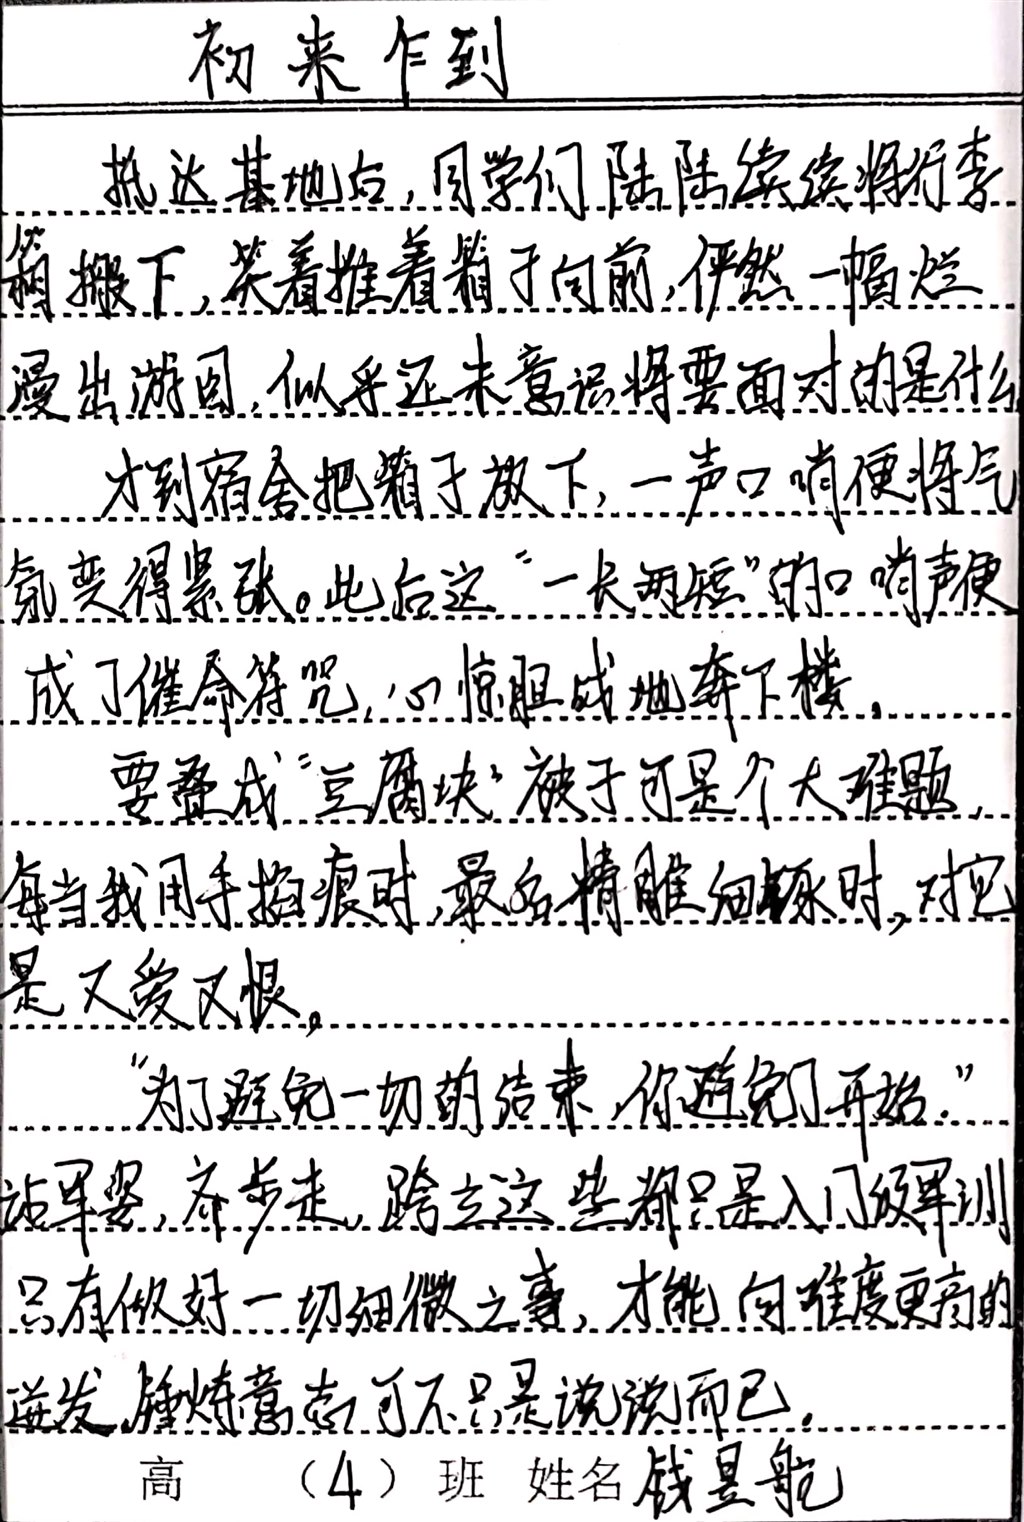 初来乍到
抵达基地后,同学们陆陆续续将行李
箱搬下,笑着推着箱子向前,俨然一幅烂
漫出游图,似乎还未意识将要面对的是什么
才到宿舍把箱子放下,一声口哨便将气
氛变得紧张。此后这“一长两短”的口哨声便
成了催命符咒,心惊胆战地奔下楼。
要叠成“豆腐块”被子可是个大难题,
每当我用手掐痕时,最后精雕细琢时,对它
是又爱又恨。
“为了避免一切的结束,你避免了开始.”
站军姿,齐步走,跨立这些都只是入门级军训
只有做好一切细微之事,才能向难度更高的
进发,锤炼意志可不只是说说而已.
高 (4) 班 姓名 钱昱舵